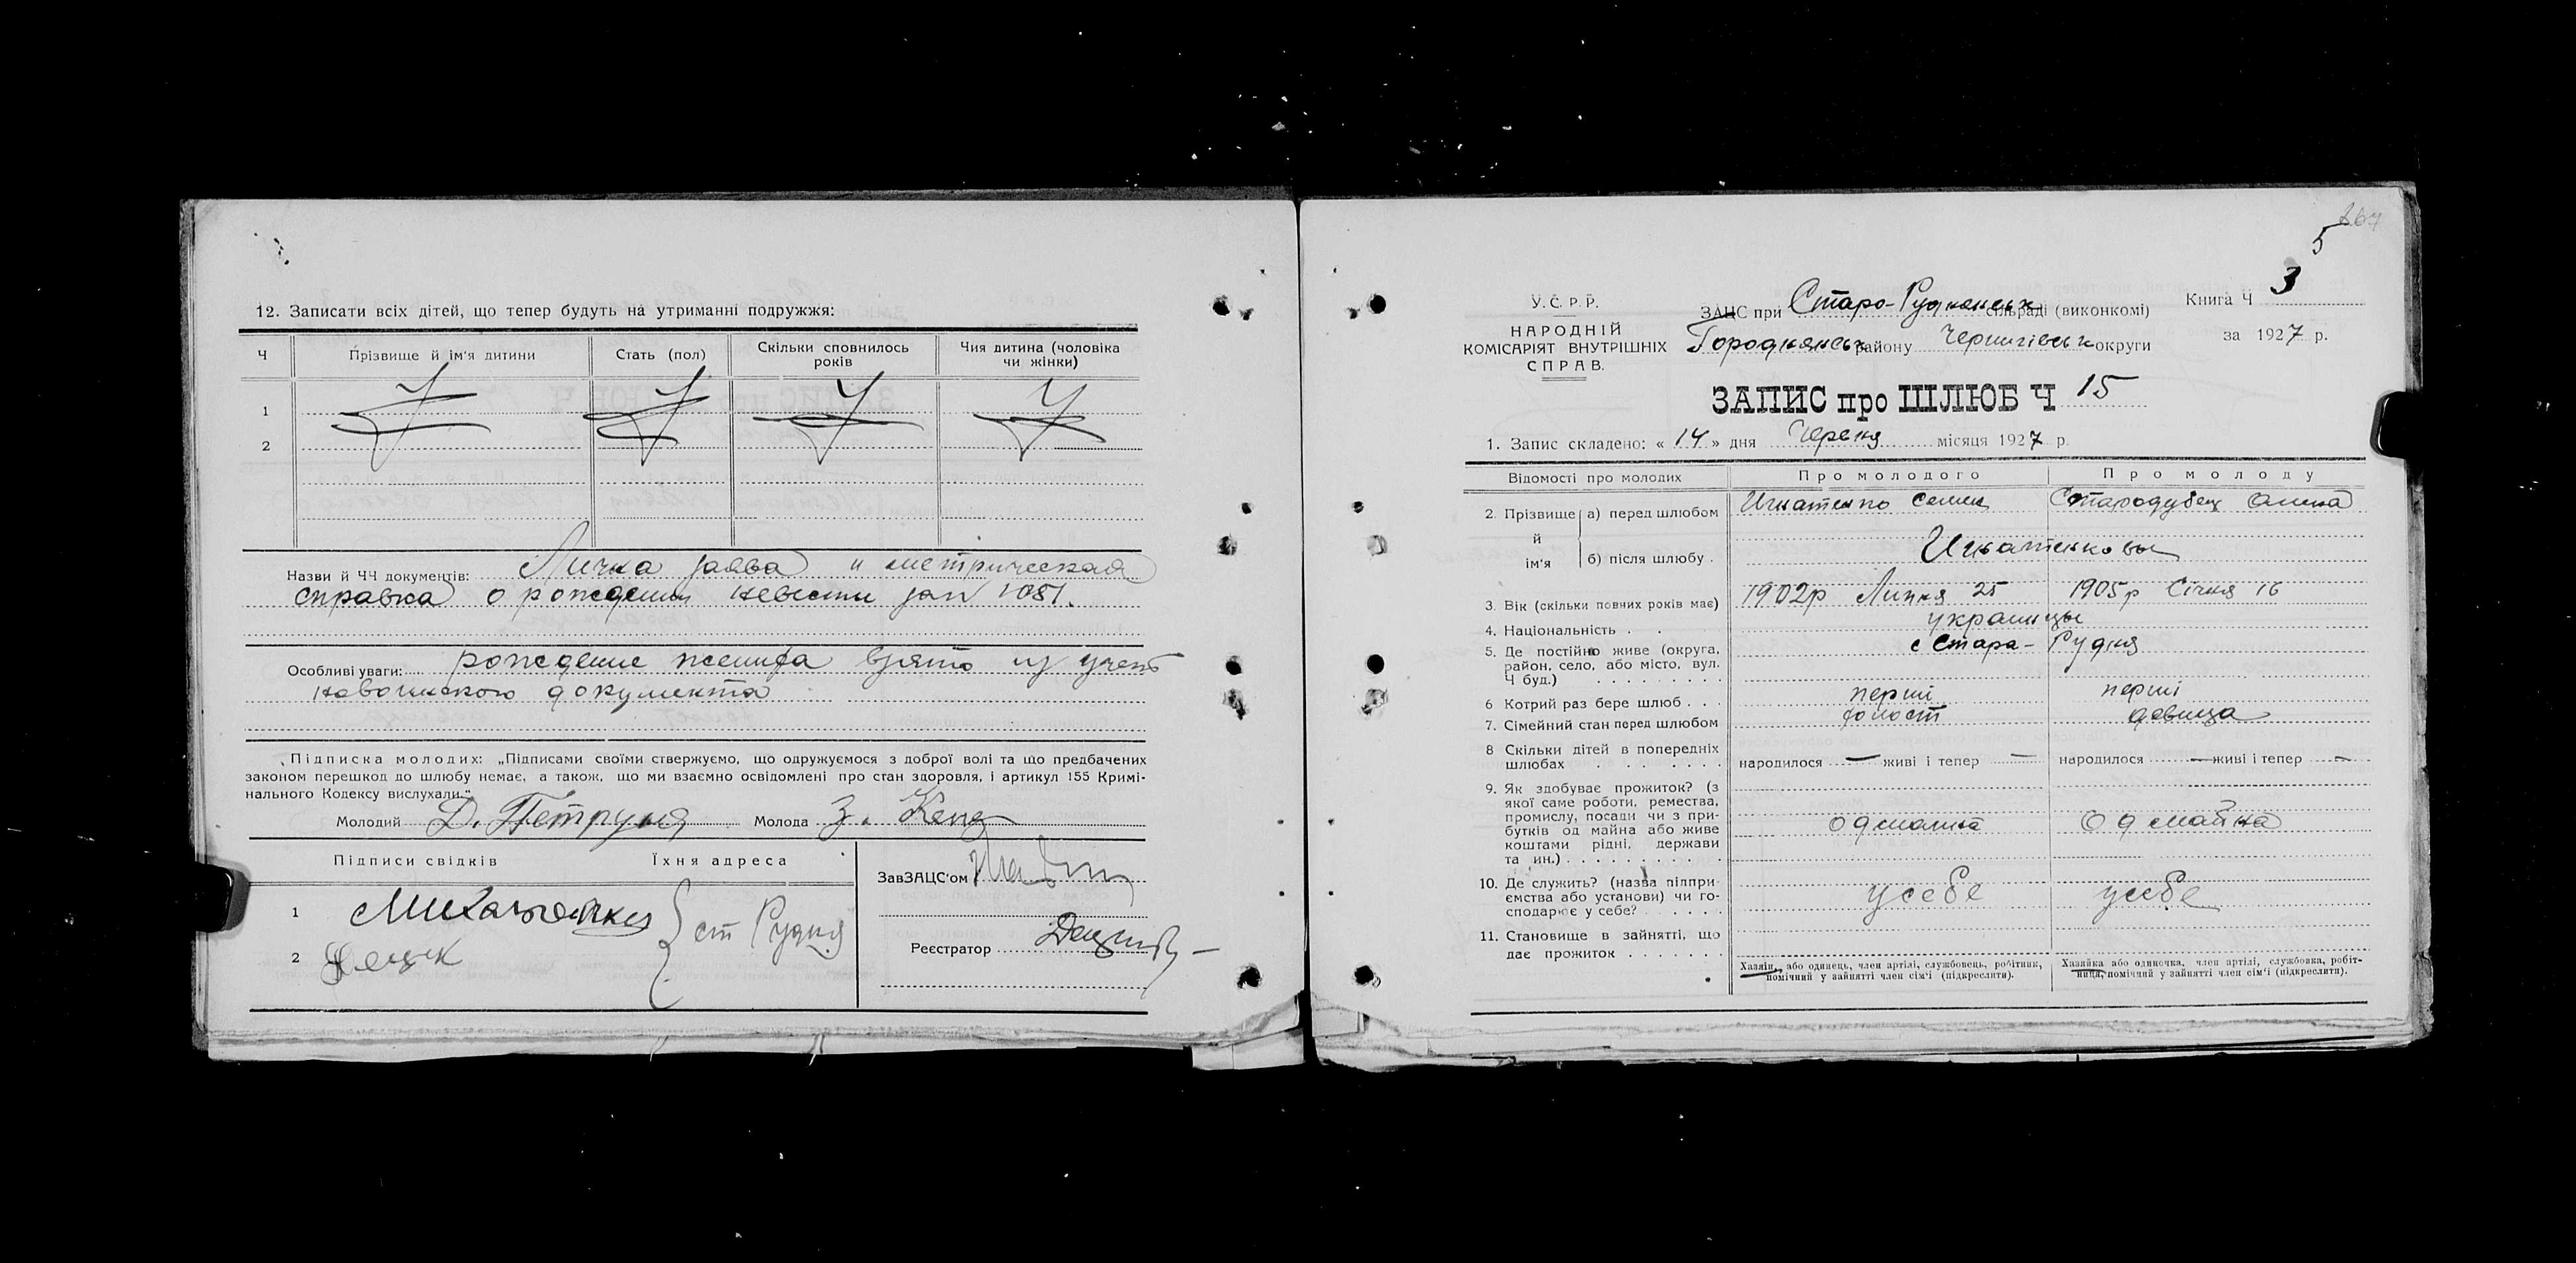 12. Записати всіх дітей, що тепер будуть на утриманні подружжя:
Ч Прізвище й ім'я дитини Стать (пол) Скільки сповнилось років Чия дитина (чоловіка чи жінки)
1
2
Назви й ЧЧ документів: Лична заява и метрическая
справка о рождении невесты за N 1081.
Особливі уваги: рождение жениха взято из учетно
воинского документа
Підписка молодих: „Підписами своїми ствержуємо, що одружуємося з доброї волі та що предбачених
законом перешкод до шлюбу немає, а також, що ми взаємно освідомлені про стан здоровля, і артикул 155 Кримі-
нального Кодексу вислухали."
Молодий Д. Петруня Молода З. Кенд
Підписи свідків Їхня адреса
1
2
ст Рудня
ЗавЗАЦС'ом
Реєстратор
267
5
У.С.Р.Р.
НАРОДНІЙ
КОМІСАРІЯТ ВНУТРІШНІХ
СПРАВ.
ЗАЦС при Старо-Руднянськ сільраді (виконкомі)
Городнянськ району Чернигівськ округи
Книга Ч 3
за 1927 р.
ЗАПИС про ШЛЮБ Ч 15
1. Запис складено: « 14 » дня Червня місяця 1927 р.
Відомості про молодих Про молодого Про молоду
2. Прізвище й ім'я а) перед шлюбом Игнатенко Семен Стародубец Анна
б) після шлюбу . Игнатенковы
3. Вік (скільки повних років має) 1902р Липня 25 1905р Січня 16
4. Національність . . украинцы
5. Де постійно живе (округа, район, село, або місто, вул. Ч буд.) с Стара-Рудня
6 Котрий раз бере шлюб . . . перши перші
7. Сімейний стан перед шлюбом холост девица
8 Скільки дітей в попередніх шлюбах народилося — живі і тепер — народилося — живі і тепер —
9. Як здобуває прожиток? (з
якої саме роботи, ремества,
промислу, посади чи з при-
бутків од майна або живе
коштами рідні, держави
та ин.) од майна од майна
10. Де служить? (назва підпри-
ємства або установи) чи го-
сподарює у себе? у себе у себе
11. Становище в зайнятті, що
дає прожиток
Хазяїн, або одинець, член артілі, службовець, робітник,
помічний у зайнятті член сім'ї (підкреслити).
Хазяйка або одиночка, член артілі, службовка, робіт-
ниця, помічний у зайнятті член сім'ї (підкреслити).